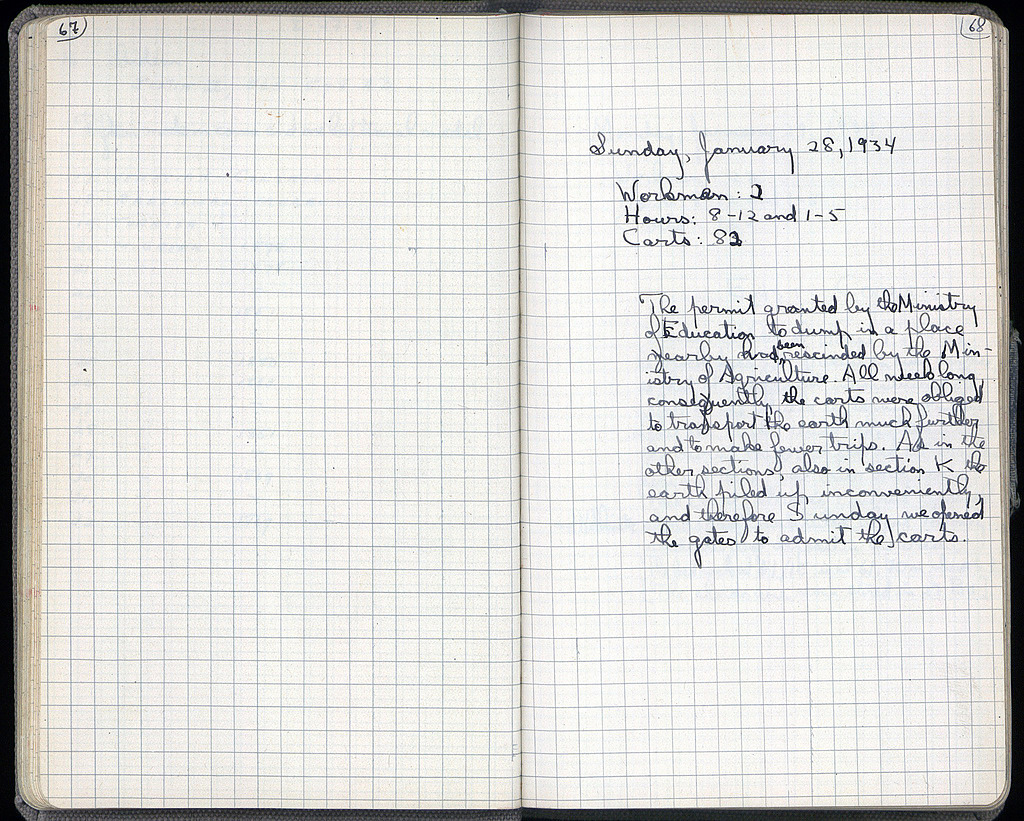 67
68
Sunday, January 28, 1934
Workmen: 2
Hours: 8-12 and 1-5
Carts: 82
The permit granted by the Ministry
of Education to dump in a place
nearby had been rescinded by the Min-
istry of Agriculture. All week long,
consequently the carts were obliged
to transport the earth much further
and to make fewer trips. As in the
other sections, also in section K the
earth piled up inconveniently,
and therefore Sunday we opened
the gates to admit the carts.